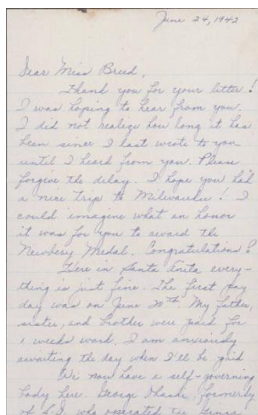 June 24, 1942
Dear Miss Breed,
Thank you for your letter!
I was hoping to hear from you.
I did not realize how long it has
been since I last wrote to you
until I heard from you. Please
forgive the delay. I hope you had
a nice trip to Milwaukee! I
could imagine what an honor
it was for you to award the
Newbery Medal. Congratulations!
Here in Santa Anita every-
thing is just fine. The first pay
day was on June 20th. My father,
sister, and brother were paid for
weeks work. I am anxiously
awaiting the day when I'll be paid
We now have a self-governing
body here. George formerly
of who operated